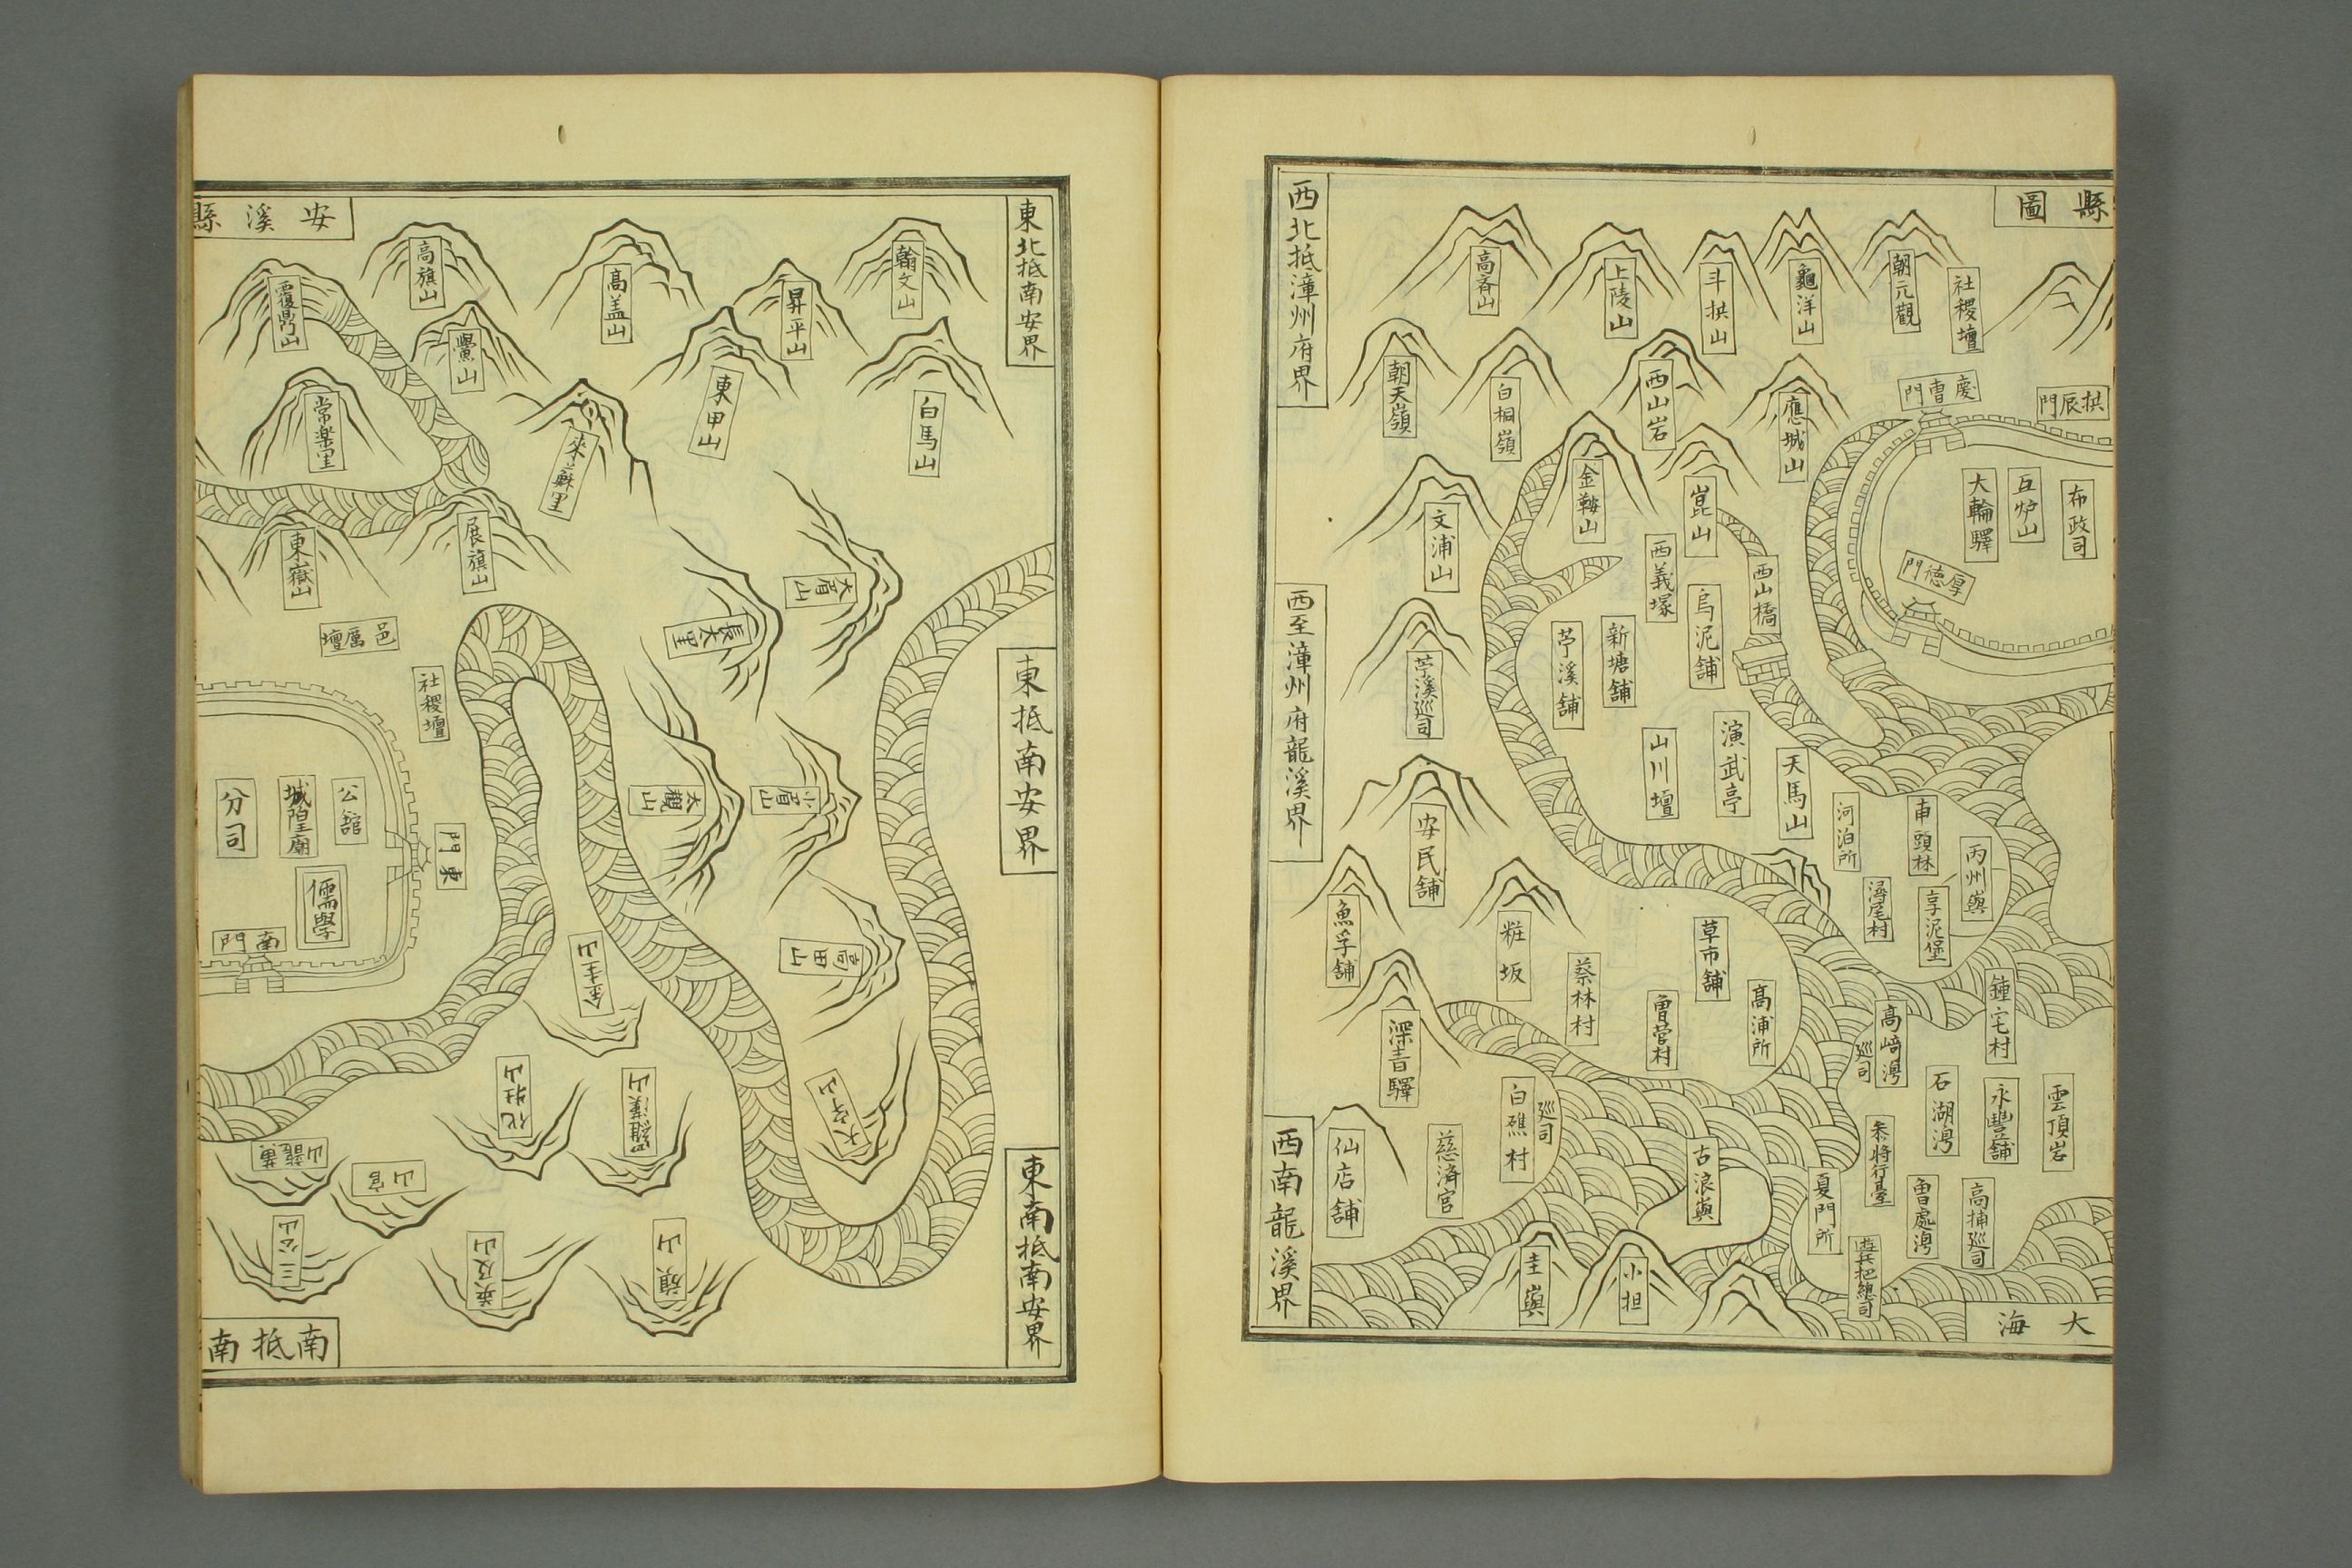 縣圖
社稷壇
朝元觀
龜洋山
斗拱山
上陵山
高斎山
西北抵漳州府界
拱辰門
慶曹門
應城山
西山岩
白桐嶺
朝天嶺
布政司
大輪驛
厚德門
崑山
金鞍山
文浦山
西義塚
西山橋
烏泥舖
新塘舖
苧溪舖
苧溪巡司
西至漳州府龍溪界
演武亭
山川壇
天馬山
河泊所
丙州嶼
潯尾村
安民舖
魚孚舖
粧坂
蔡林村
草市舖
高浦所
曾營村
鍾宅村
高崎灣
巡司
深青驛
白礁村
巡司
慈済宮
仙店舖
西南龍溪界
雲頂岩
永豐舖
石湖灣
参將行臺
古浪嶼
夏門所
曾處灣
高捕巡司
遊兵把總司
圭嶼
小担
大海
東北抵南安界
翰文山
昇平山
高盖山
高旗山
安溪縣
覆鼎山
黌山
東甲山
白馬山
來蘇里
常樂里
展旗山
東嶽山
大眉山
長太里
邑厲壇
社稷壇
東抵南安界
小眉山
大觀山
公館
城隍廟
分司
儒學
東門
南門
高田山
金圭山
羅漢山
官山
三公山
英及山
旗山
東南抵南安界
南抵南